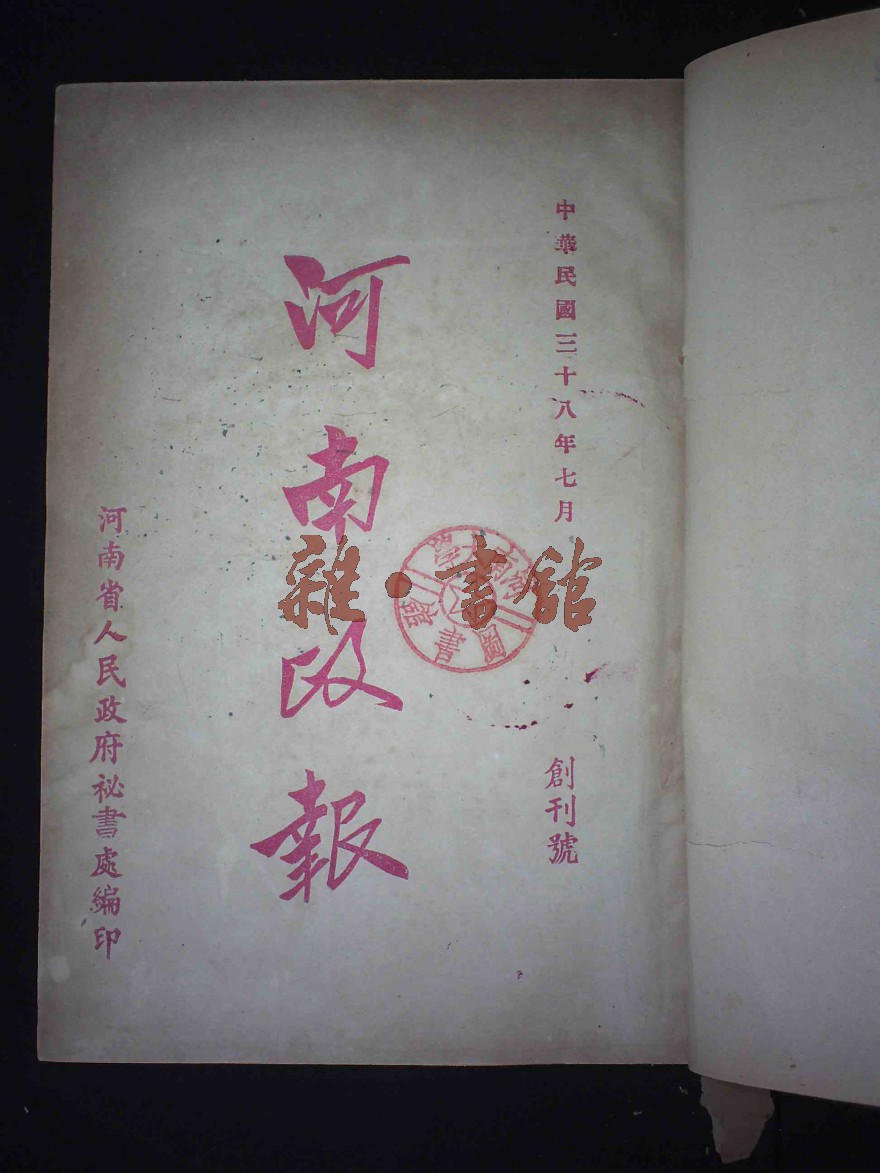 中華民國三十八年七月
創刊號
河南政報
河南省人民政府祕書處編印
雜·書館
河南大學圖書館